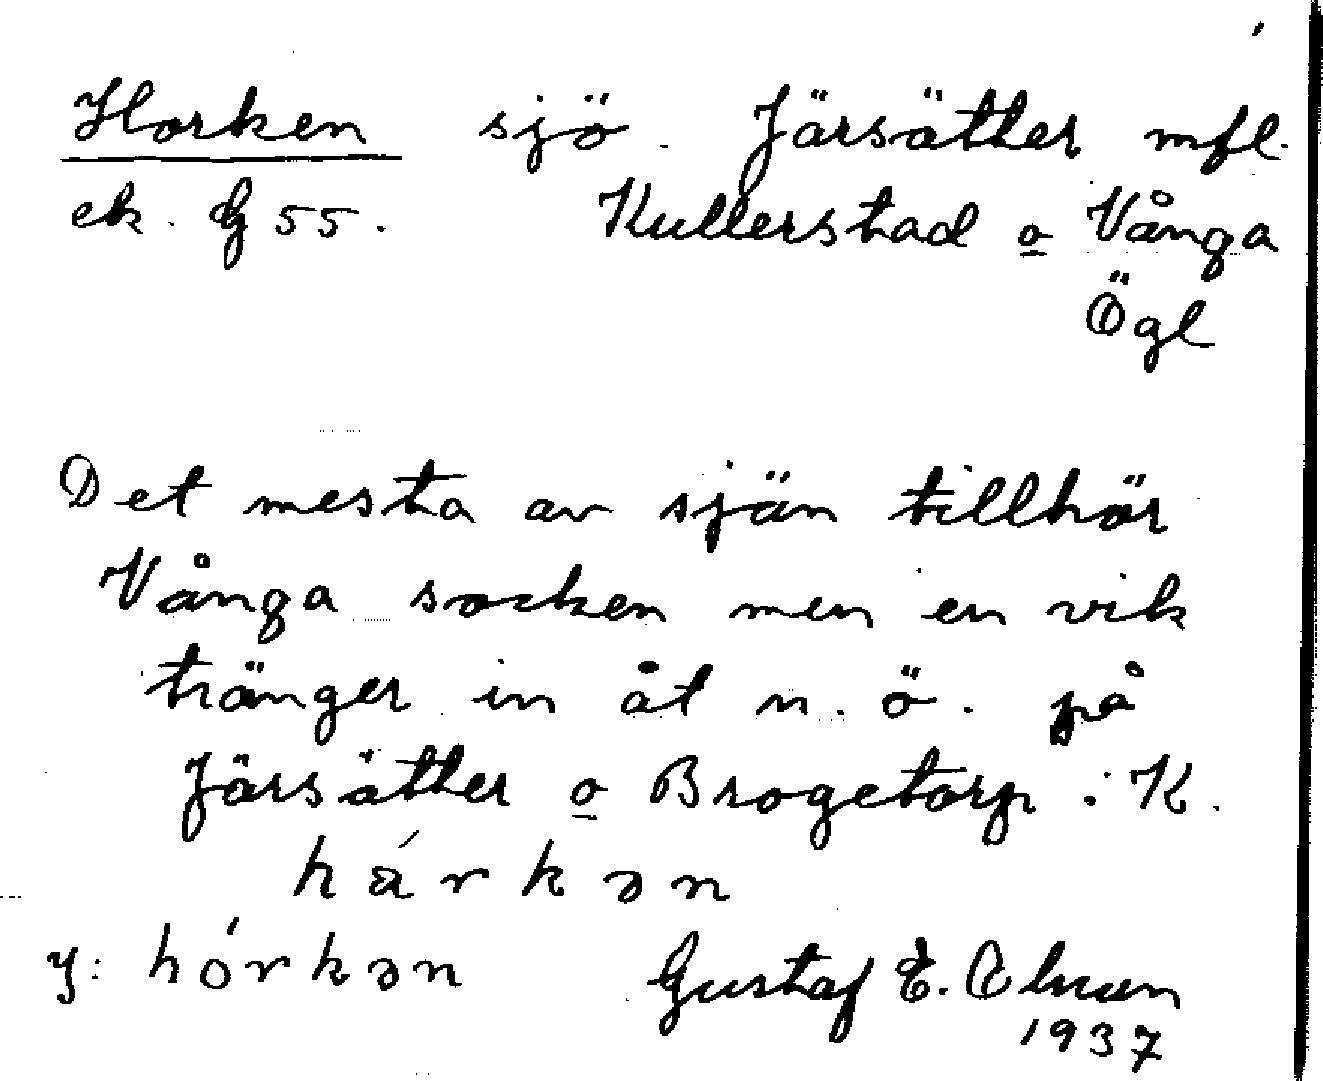 Horken sjö. Järsätter mfl.
ek. G 55. Kullerstad o Vånga
Ögl
Det mesta av sjön tillhör
Vånga socken men en vik
tränger in åt n. ö. på
Järsätter o Brogetorp i K.
hárkən
y: hórkən Gustaf E.
1937